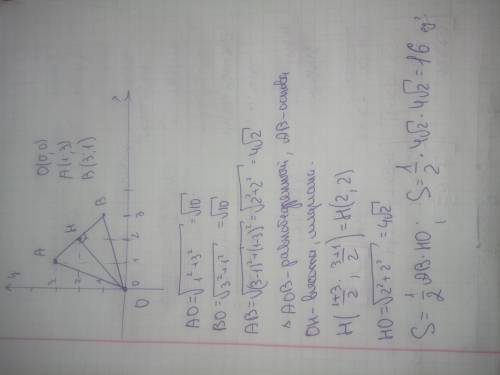 y
A
3
2
H
1
B
O
1 2 3
x
O(0;0)
A(1;3)
B(3;1)
AO=√1²+3²=√10
BO=√3²+1²=√10
AB=√(3-1)²+(1-3)²=√2²+2²=4√2
△AOB-равнобедренный, AB-основа
OH-высота, медиана.
H(1+3/2; 3+1/2)=H(2;2)
HO=√2²+2²=4√2
S=1/2AB·HO; S=1/2·4√2·4√2=16